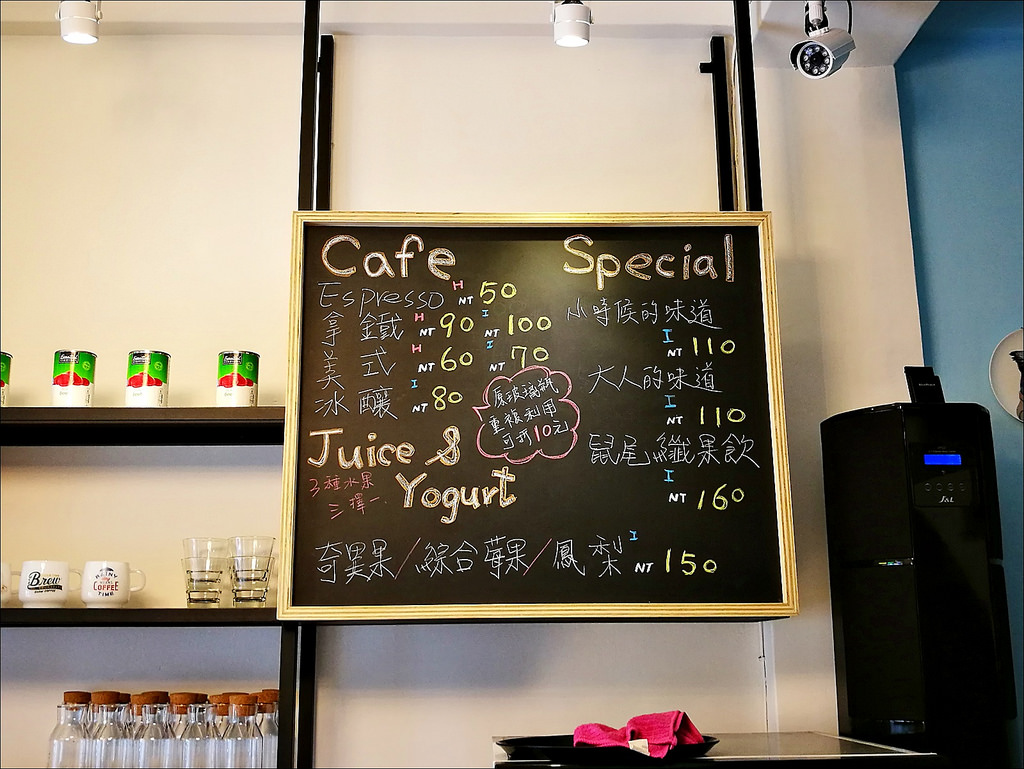 Cafe
Espresso H NT 50
拿鐵 H NT 90 I NT 100
美式 H NT 60 I NT 70
冰釀 I NT 80
原玻璃瓶
重複利用
可折10元
Juice & Yogurt
3種水果
三擇一
奇異果/綜合莓果/鳳梨 I NT 150
Special
小時候的味道
I NT 110
大人的味道
I NT 110
鼠尾纖果飲
I NT 160
Brew
RAINY
COFFEE
TIME